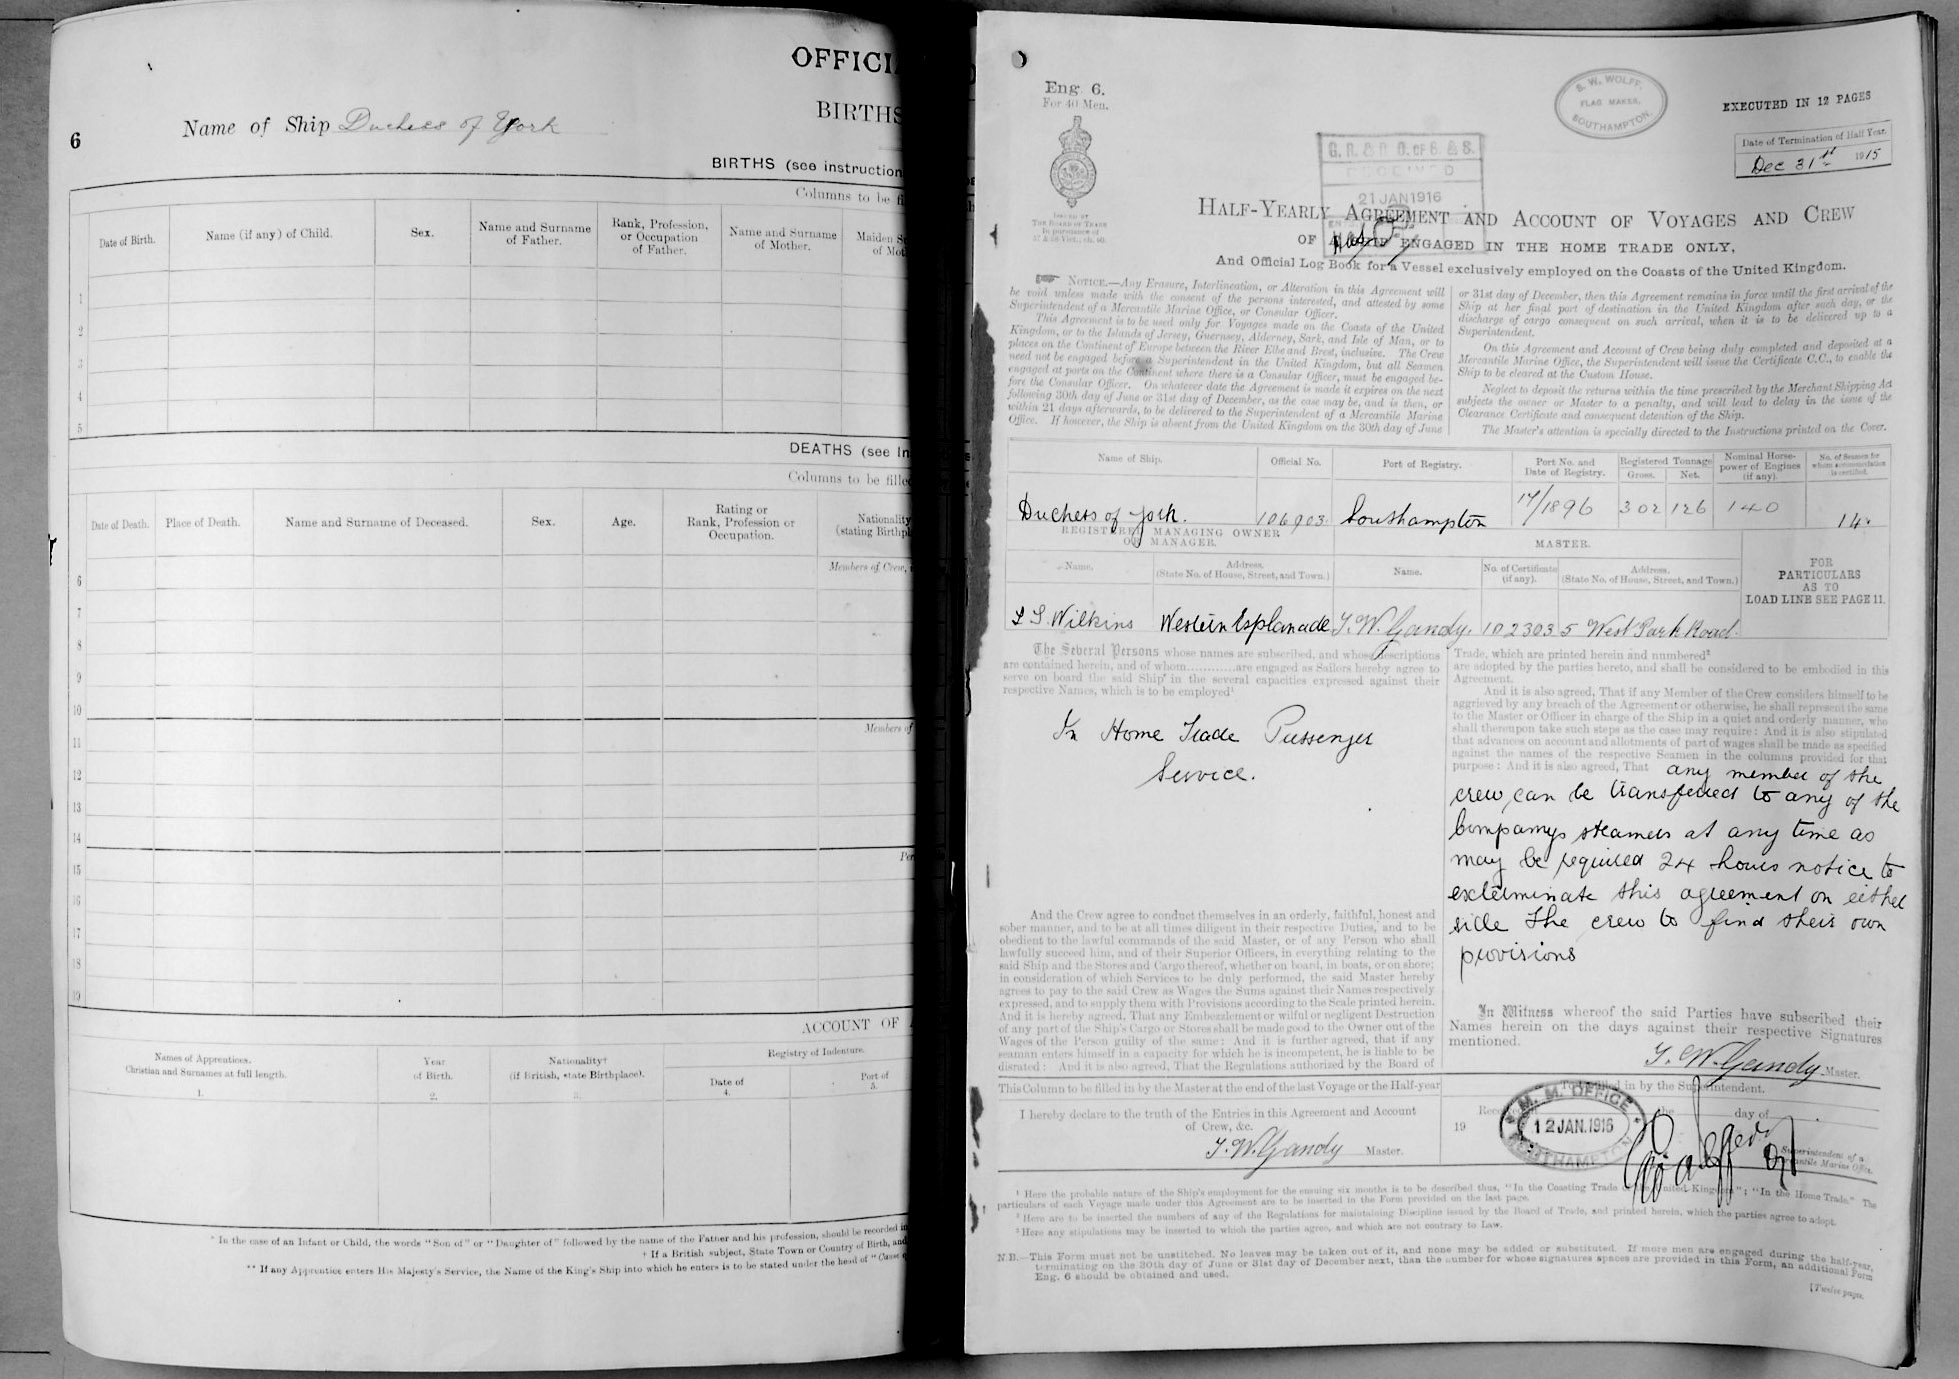 OFFICI
BIRTHS
6
Name of Ship Duchess of York
BIRTHS (see instruction
Columns to be fi
Date of Birth.
Name (if any) of Child.
Sex.
Name and Surname
of Father.
Rank, Profession,
or Occupation
of Father.
Name and Surname
of Mother.
Maiden S
of Mot
1
2
3
4
5
DEATHS (see In
Columns to be filled
Date of Death.
Place of Death.
Name and Surname of Deceased.
Sex.
Age.
Rating or
Rank, Profession or
Occupation.
Nationality
(stating Birthpl
Members of Crew,
6
7
8
9
10
Members of
11
12
13
14
Per
15
16
17
18
19
ACCOUNT OF A
Names of Apprentices.
Christian and Surnames at full length.
1.
Year
of Birth.
2.
Nationality†
(if British, state Birthplace).
3.
Registry of Indenture.
Date of
4.
Port of
5.
* In the case of an Infant or Child, the words "Son of" or "Daughter of" followed by the name of the Father and his profession, should be recorded in
† If a British subject, State Town or Country of Birth, and
** If any Apprentice enters His Majesty's Service, the Name of the King's Ship into which he enters is to be stated under the head of "Cause o
Eng. 6.
For 40 Men.
ISSUED BY
THE BOARD OF TRADE
In pursuance of
57 & 58 Vict., ch. 60.
S. W. WOLFF,
FLAG MAKER,
SOUTHAMPTON.
EXECUTED IN 12 PAGES
Date of Termination of Half Year.
Dec 31st 1915
G. R. & R. O. OF S. & S.
RECEIVED
21 JAN 1916
HALF-YEARLY AGREEMENT AND ACCOUNT OF VOYAGES AND CREW
OF A SHIP ENGAGED IN THE HOME TRADE ONLY,
And Official Log Book for a Vessel exclusively employed on the Coasts of the United Kingdom.
NOTICE.—Any Erasure, Interlineation, or Alteration in this Agreement will
be void unless made with the consent of the persons interested, and attested by some
Superintendent of a Mercantile Marine Office, or Consular Officer.
This Agreement is to be used only for Voyages made on the Coasts of the United
Kingdom, or to the Islands of Jersey, Guernsey, Alderney, Sark, and Isle of Man, or to
places on the Continent of Europe between the River Elbe and Brest, inclusive. The Crew
need not be engaged before a Superintendent in the United Kingdom, but all Seamen
engaged at ports on the Continent where there is a Consular Officer, must be engaged be-
fore the Consular Officer. On whatever date the Agreement is made it expires on the next
following 30th day of June or 31st day of December, as the case may be, and is then, or
within 21 days afterwards, to be delivered to the Superintendent of a Mercantile Marine
Office. If however, the Ship is absent from the United Kingdom on the 30th day of June
or 31st day of December, then this Agreement remains in force until the first arrival of the
Ship at her final port of destination in the United Kingdom after such day, or the
discharge of cargo consequent on such arrival, when it is to be delivered up to a
Superintendent.
On this Agreement and Account of Crew being duly completed and deposited at a
Mercantile Marine Office, the Superintendent will issue the Certificate C.C., to enable the
Ship to be cleared at the Custom House.
Neglect to deposit the returns within the time prescribed by the Merchant Shipping Act
subjects the owner or Master to a penalty, and will lead to delay in the issue of the
Clearance Certificate and consequent detention of the Ship.
The Master's attention is specially directed to the Instructions printed on the Cover.
Name of Ship.
Official No.
Port of Registry.
Port No. and
Date of Registry.
Registered Tonnage
Gross.
Net.
Nominal Horse-
power of Engines
(if any).
No. of Seamen for
whom accommodation
is certified.
Duchess of York.
106903
Southampton
17/1896
302
126
140
14.
REGISTERED MANAGING OWNER
OR MANAGER.
MASTER.
FOR
PARTICULARS
AS TO
LOAD LINE SEE PAGE 11.
Name.
Address.
(State No. of House, Street, and Town.)
Name.
No. of Certificate
(if any).
Address.
(State No. of House, Street, and Town.)
Wilkins
Western Esplanade
W. Gandy.
102303
5 West Park Road.
The Several Persons whose names are subscribed, and whose descriptions
are contained herein, and of whom............are engaged as Sailors hereby agree to
serve on board the said Ship in the several capacities expressed against their
respective Names, which is to be employed¹
In Home Trade Passenger
Service.
And the Crew agree to conduct themselves in an orderly, faithful, honest and
sober manner, and to be at all times diligent in their respective Duties, and to be
obedient to the lawful commands of the said Master, or of any Person who shall
lawfully succeed him, and of their Superior Officers, in everything relating to the
said Ship and the Stores and Cargo thereof, whether on board, in boats, or on shore;
in consideration of which Services to be duly performed, the said Master hereby
agrees to pay to the said Crew as Wages the Sums against their Names respectively
expressed, and to supply them with Provisions according to the Scale printed herein.
And it is hereby agreed, That any Embezzlement or wilful or negligent Destruction
of any part of the Ship's Cargo or Stores shall be made good to the Owner out of the
Wages of the Person guilty of the same: And it is further agreed, that if any
seaman enters himself in a capacity for which he is incompetent, he is liable to be
disrated: And it is also agreed, That the Regulations authorized by the Board of
Trade, which are printed herein and numbered²
are adopted by the parties hereto, and shall be considered to be embodied in this
Agreement.
And it is also agreed, That if any Member of the Crew considers himself to be
aggrieved by any breach of the Agreement or otherwise, he shall represent the same
to the Master or Officer in charge of the Ship in a quiet and orderly manner, who
shall thereupon take such steps as the case may require: And it is also stipulated
that advances on account and allotments of part of wages shall be made as specified
against the names of the respective Seamen in the columns provided for that
purpose: And it is also agreed, That any member of the
crew can be transferred to any of the
Companys steamers at any time as
may be required 24 hours notice to
exterminate this agreement on either
side The crew to find their own
provisions
In Witness whereof the said Parties have subscribed their
Names herein on the days against their respective Signatures
mentioned.
W. Gandy Master.
This Column to be filled in by the Master at the end of the last Voyage or the Half-year
I hereby declare to the truth of the Entries in this Agreement and Account
of Crew, &c.
W. Gandy Master.
To be filled in by the Superintendent.
the day of
19
M. M. OFFICE
12 JAN. 1916
SOUTHAMPTON
Superintendent of a
Mercantile Marine Office.
¹ Here the probable nature of the Ship's employment for the ensuing six months is to be described thus, "In the Coasting Trade of the United Kingdom"; "In the Home Trade." The
particulars of each Voyage made under this Agreement are to be inserted in the Form provided on the last page.
² Here are to be inserted the numbers of any of the Regulations for maintaining Discipline issued by the Board of Trade, and printed herein, which the parties agree to adopt.
³ Here any stipulations may be inserted to which the parties agree, and which are not contrary to Law.
N.B.—This Form must not be unstitched. No leaves may be taken out of it, and none may be added or substituted. If more men are engaged during the half-year,
terminating on the 30th day of June or 31st day of December next, than the number for whose signatures spaces are provided in this Form, an additional Form
Eng. 6 should be obtained and used.
[Twelve pages.